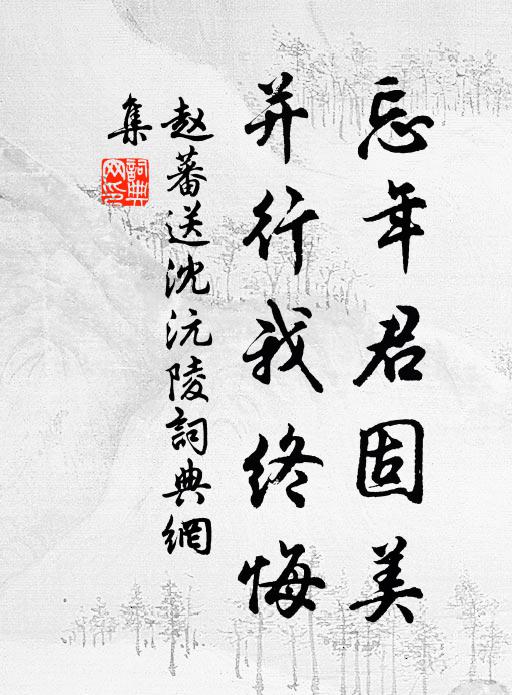 忘年君固美
并行我终悔
赵蕃送沈沅陵詞典網
集
詞典網印